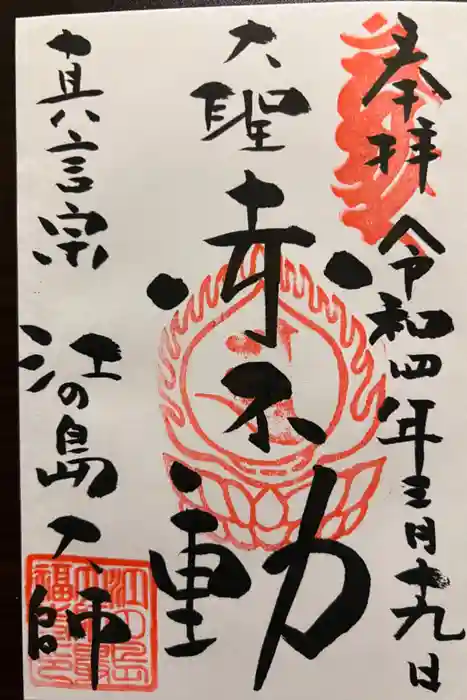 奉拝 令和四年三月十九日
大聖寺 不動
真言宗 江の島大師